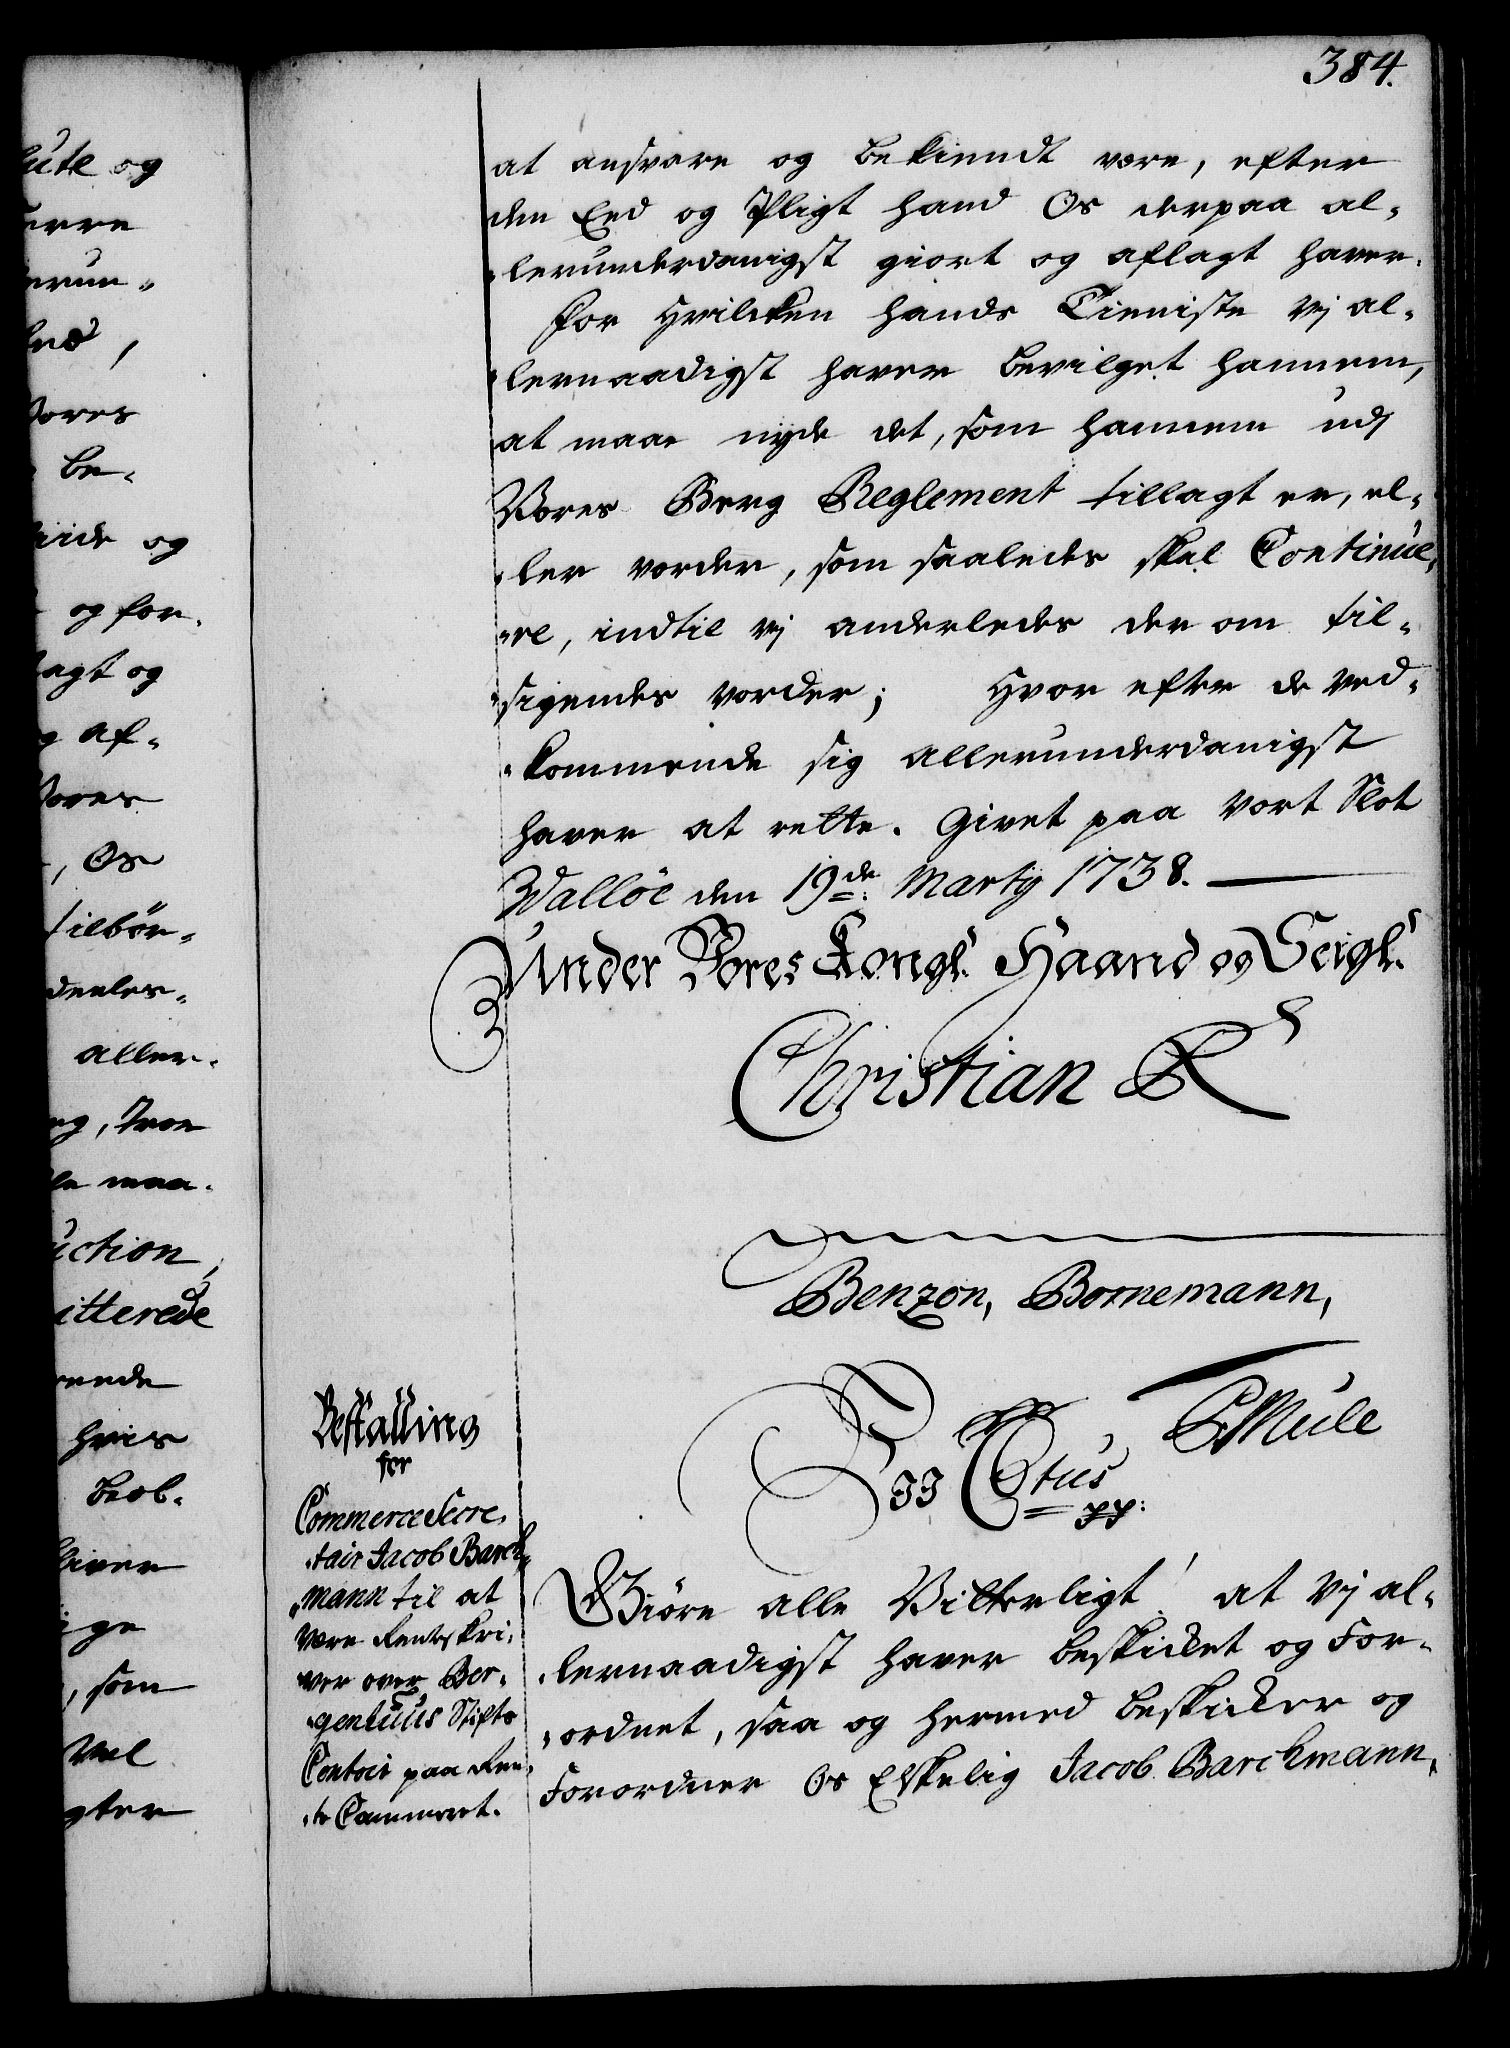 384.
at ansvare og bekiendt være, efter
den Eed og Pligt hand Os derpaa al-
lerunderdanigst giort og aflagt haver.
For hvilcken hands Tieniste vj al-
lernaadigst haver bevilget hannem,
at maae nyde det, som hannem udj
Vores Berg Reglement tillagt er, el-
ler vorder, som saaledes skal Continue-
re, indtil vj anderledes der om til-
sigendes vorder; Hvor efter de ved-
kommende sig allerunderdanigst
haver at rette. Givet paa Vort Slot
Walløe den 19de: Marty 1738.
Under Vores Kongl. Haand og Seigl.
Christian R
Benzon, Bornemann,
EMule
Vj CStus
pp:
Bestalling
for
Commerce Secre-
tair Jacob Barck-
mann til at
være Rentskri-
ver over Ber-
genhuus Stifts
Contoir paa Ren-
te Cammeret.
Giøre alle Vitterligt! at Vj al-
lernaadigst haver beskicket og For-
ordnet, saa og hermed beskicker og
Forordner Os Elskelig Jacob Barckmann,
ute og
erre
erun-
ens,
Vores
be-
og
og for-
agt og
af-
Vores
, Os
tilbør-
deeles-
aller-
, troe
maa-
uction,
itterede
hvis
beob-
liver
ige
, som
Vel
gter